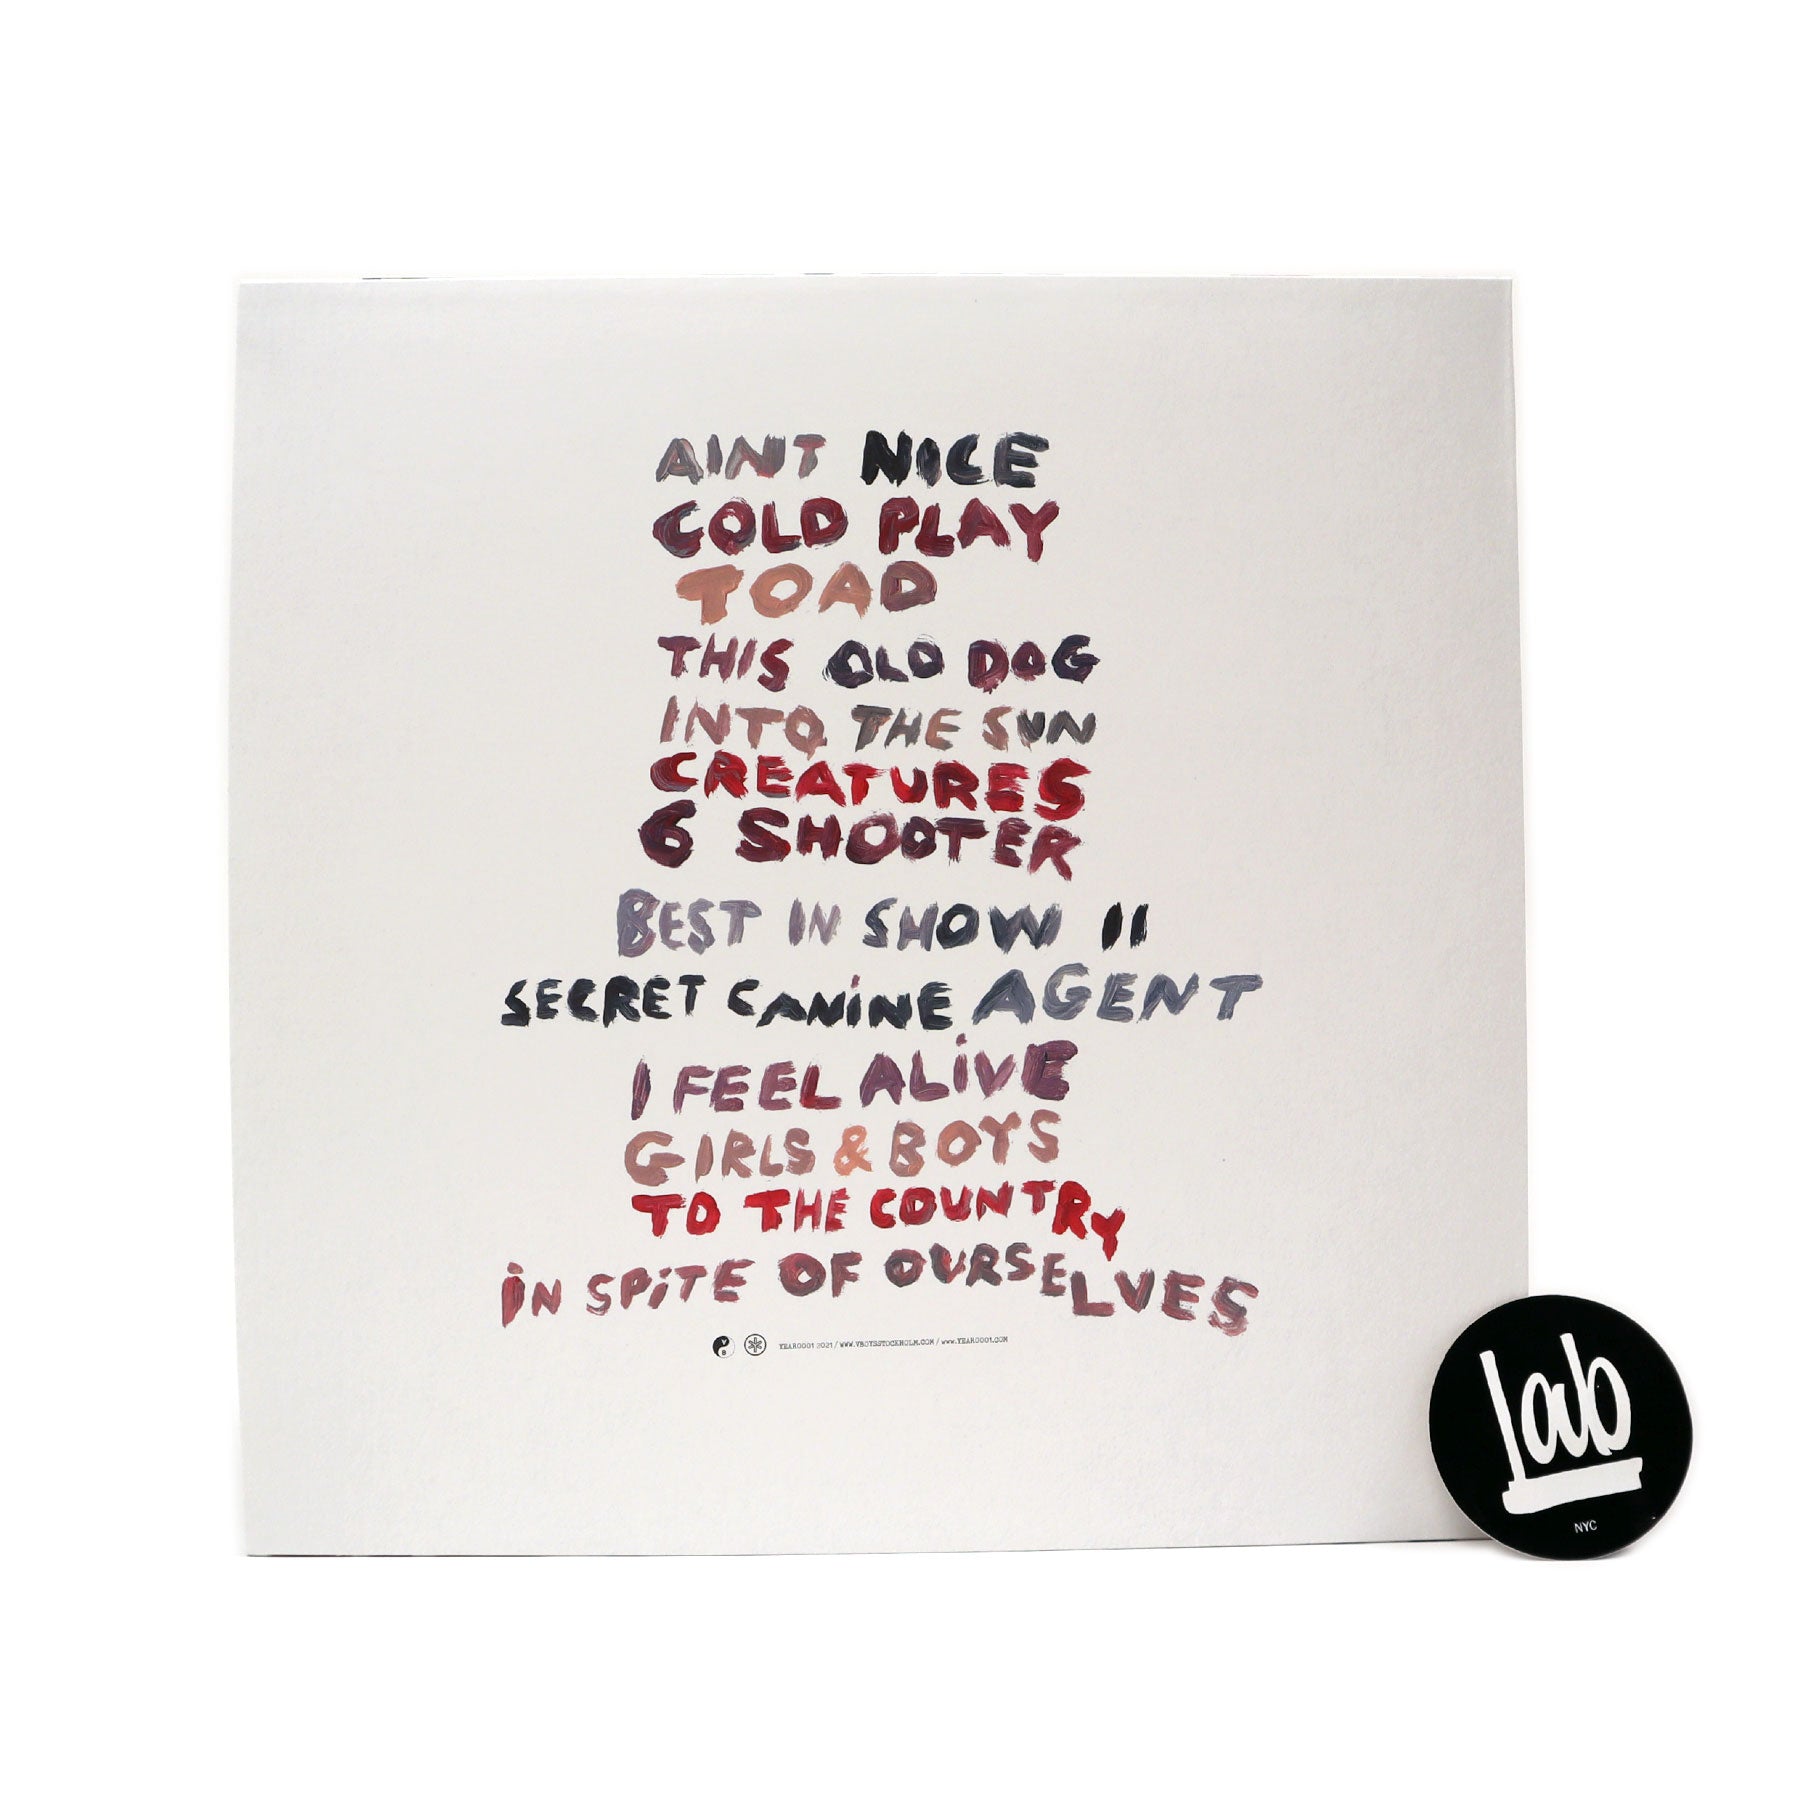 AINT NICE
COLD PLAY
TOAD
THIS OLD DOG
INTO THE SUN
CREATURES
6 SHOOTER
BEST IN SHOW II
SECRET CANiNE AGENT
I FEEL ALiVE
GIRLS & BOYS
TO THE COUNTRY
iN SPiTE OF OURSELVES
V
B
YEAR0001 2021 / WWW.VBOYSSTOCKHOLM.COM / WWW.YEAR0001.COM
Lab
NYC